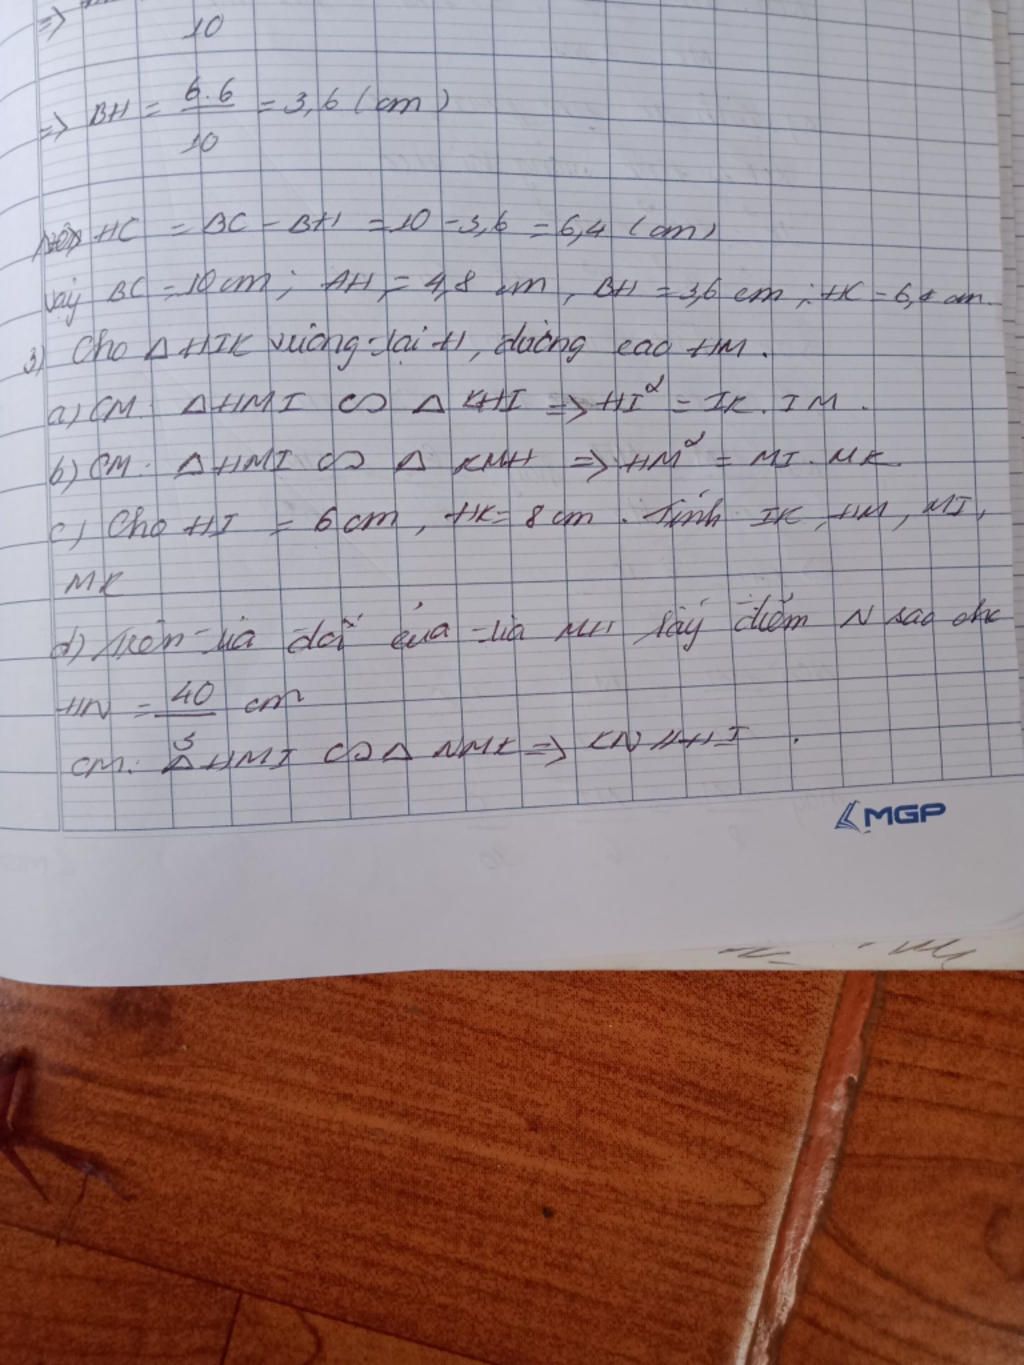 => 10
=> BH = 6.6/10 = 3,6 (cm)
Nên HC = BC - BH = 10 - 3,6 = 6,4 (cm)
vậy BC = 10 cm; AH = 4,8 cm, BH = 3,6 cm; HC = 6,4 cm.
3) Cho △HIK vuông tại H, đường cao HM.
a) CM: △HMI ∽ △KHI => HI² = IK.IM.
b) CM: △HMI ∽ △KMH => HM² = MI.MK
c) Cho HI = 6 cm, HK = 8 cm. Tính IK, HM, MI,
MK
d) Trên tia đối của tia MH lấy điểm N sao cho
HN = 40/3 cm
CM: △HMI ∽ △NMK => KN // HI.
MGP